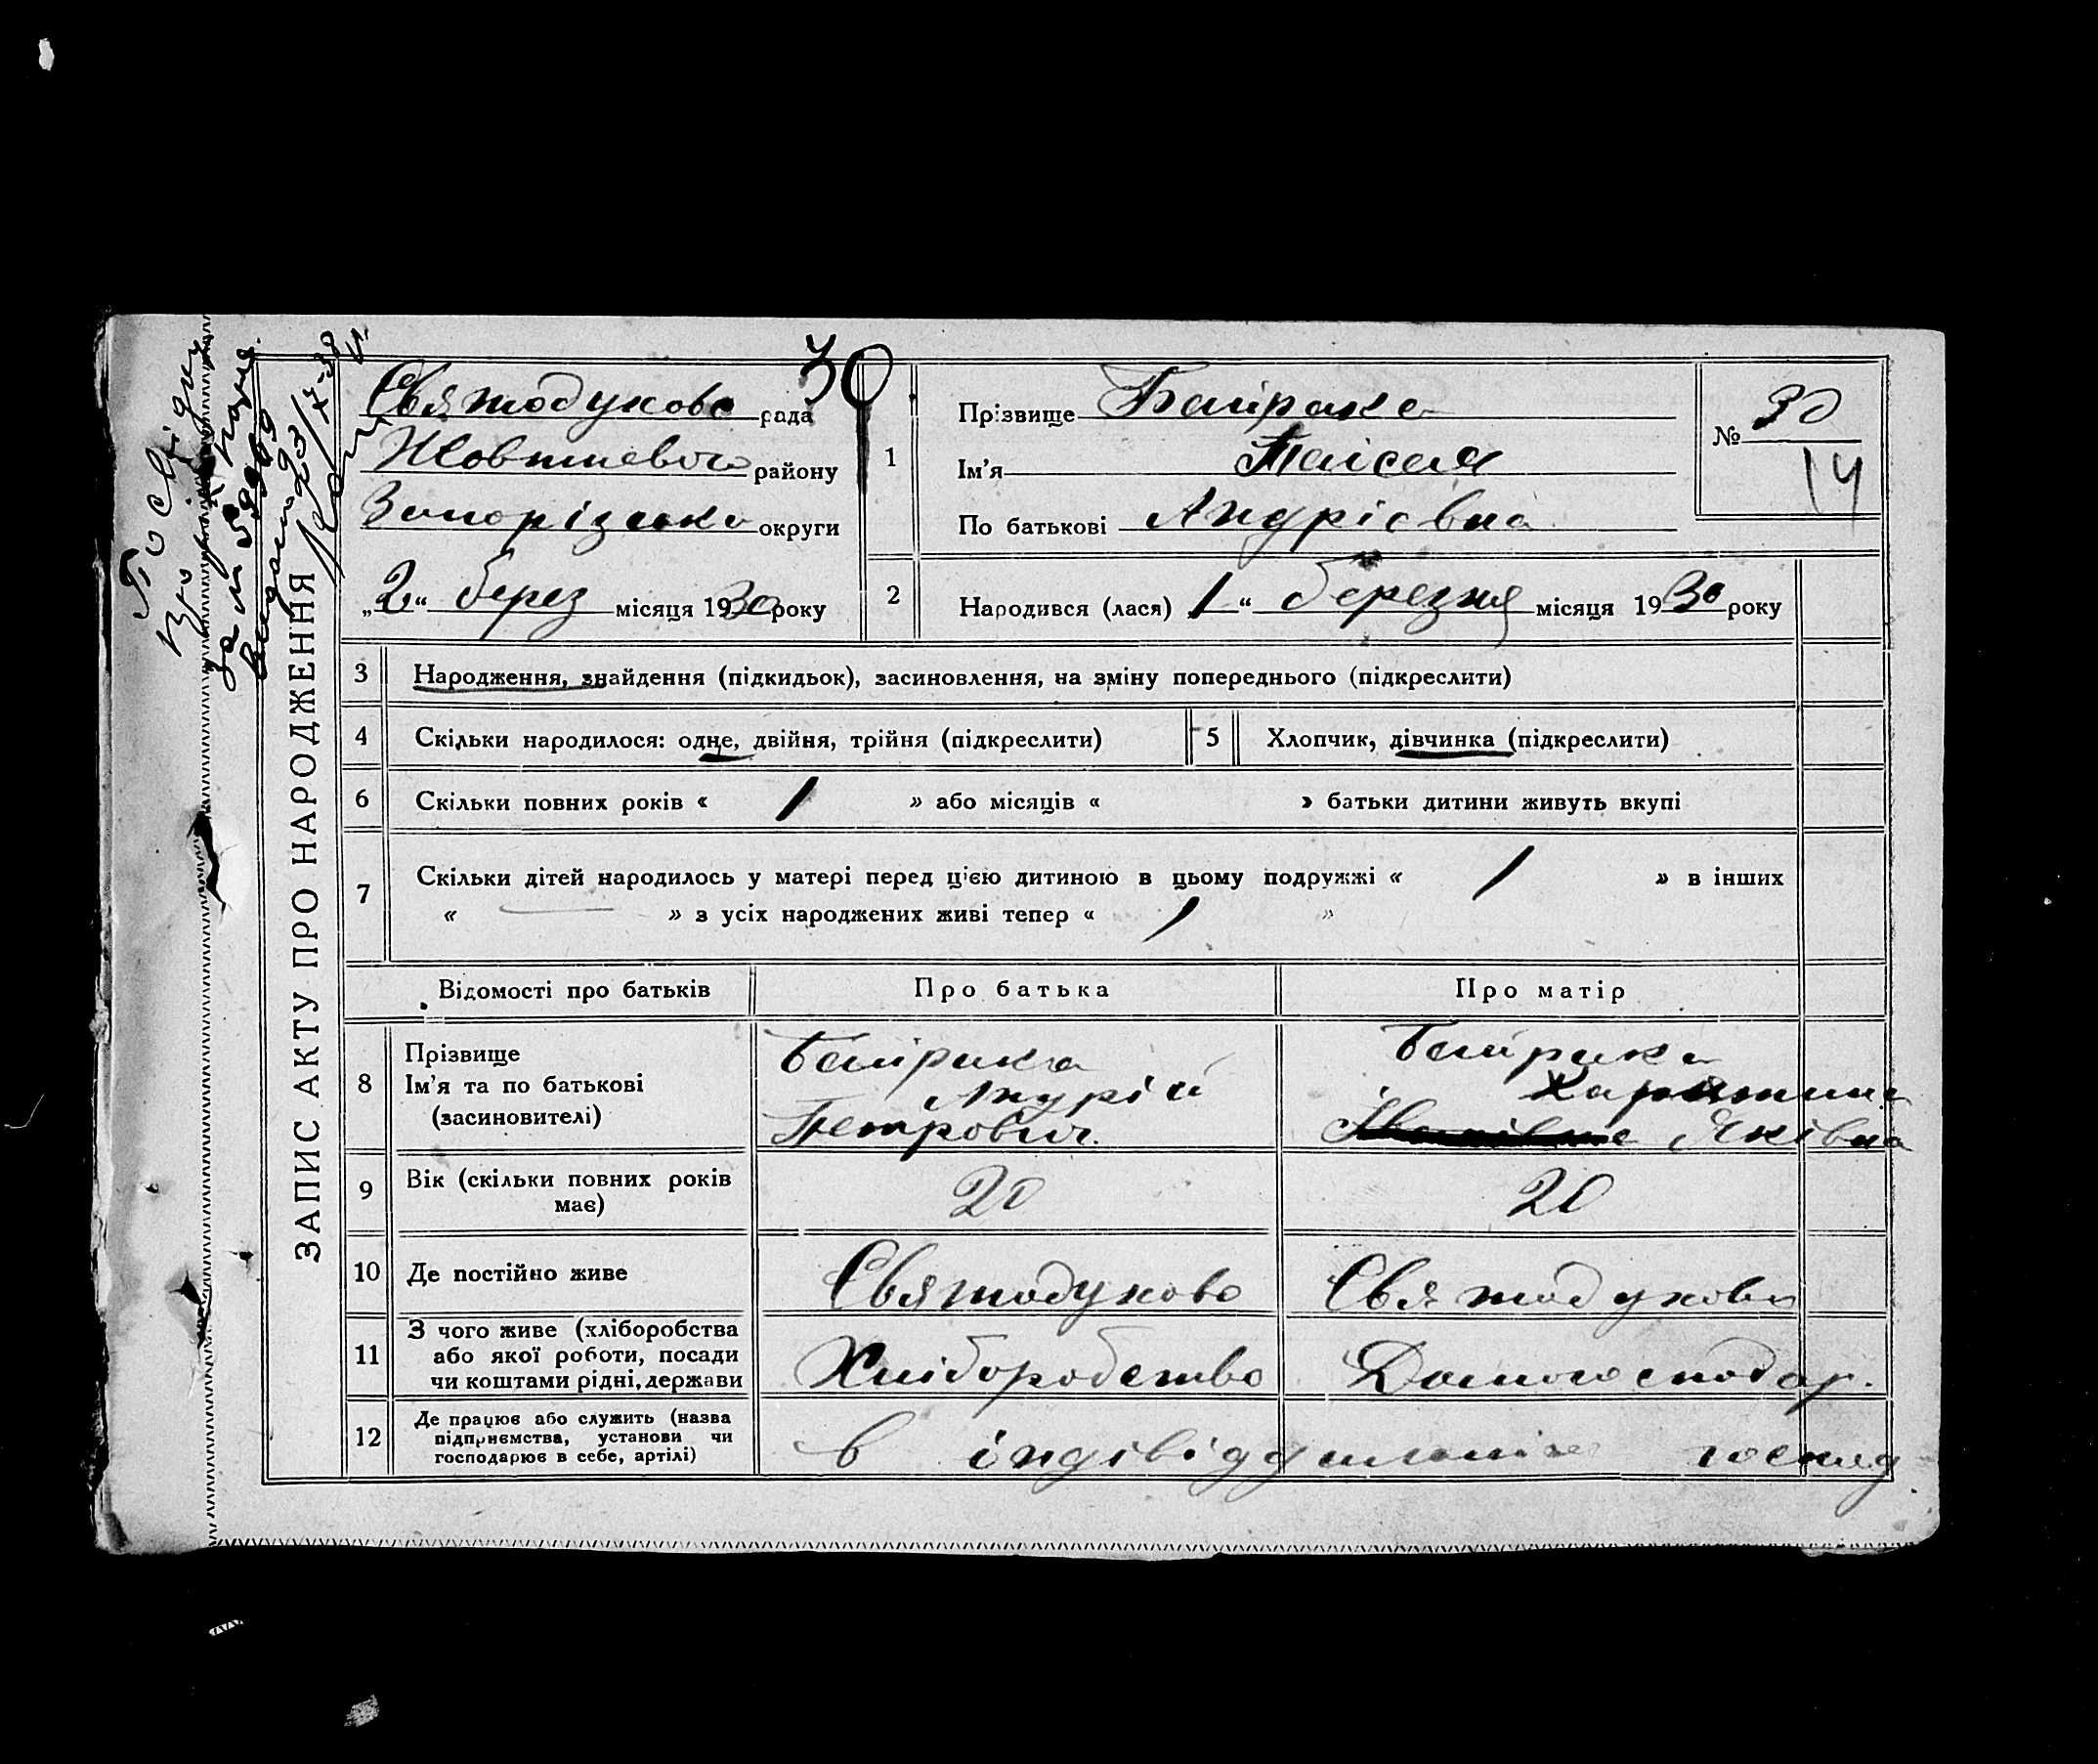 30
Святодухово рада
Жовтневого району
Запорізько округи
„2“ берез місяця 1930 року
1
Прізвище Байрака
Ім'я Таісая
По батькові Андрієвна
№ 30
14
2
Народився (лася) 1 “ березня місяця 1930 року
ЗАПИС АКТУ ПРО НАРОДЖЕННЯ
3 Народження, знайдення (підкидьок), засиновлення, на зміну попереднього (підкреслити)
4 Скільки народилося: одне, двійня, трійня (підкреслити)
5 Хлопчик, дівчинка (підкреслити)
6 Скільки повних років « 1 » або місяців « » батьки дитини живуть вкупі
7 Скільки дітей народилось у матері перед цією дитиною в цьому подружжі « 1 » в інших
« — » з усіх народжених живі тепер « 1 »
Відомості про батьків Про батька Про матір
8
Прізвище
Ім'я та по батькові
(засиновителі)
Байрака
Андрій
Петрович.
Байрака
Харитина
Яківна
9 Вік (скільки повних років
має)
20
20
10 Де постійно живе
Святодухово
Святодухово
11
З чого живе (хліборобства
або якої роботи, посади
чи коштами рідні, держави
Хліборобство
Домогосподар.
12
Де працює або служить (назва
підприємства, установи чи
господарює в себе, артілі)
в господ